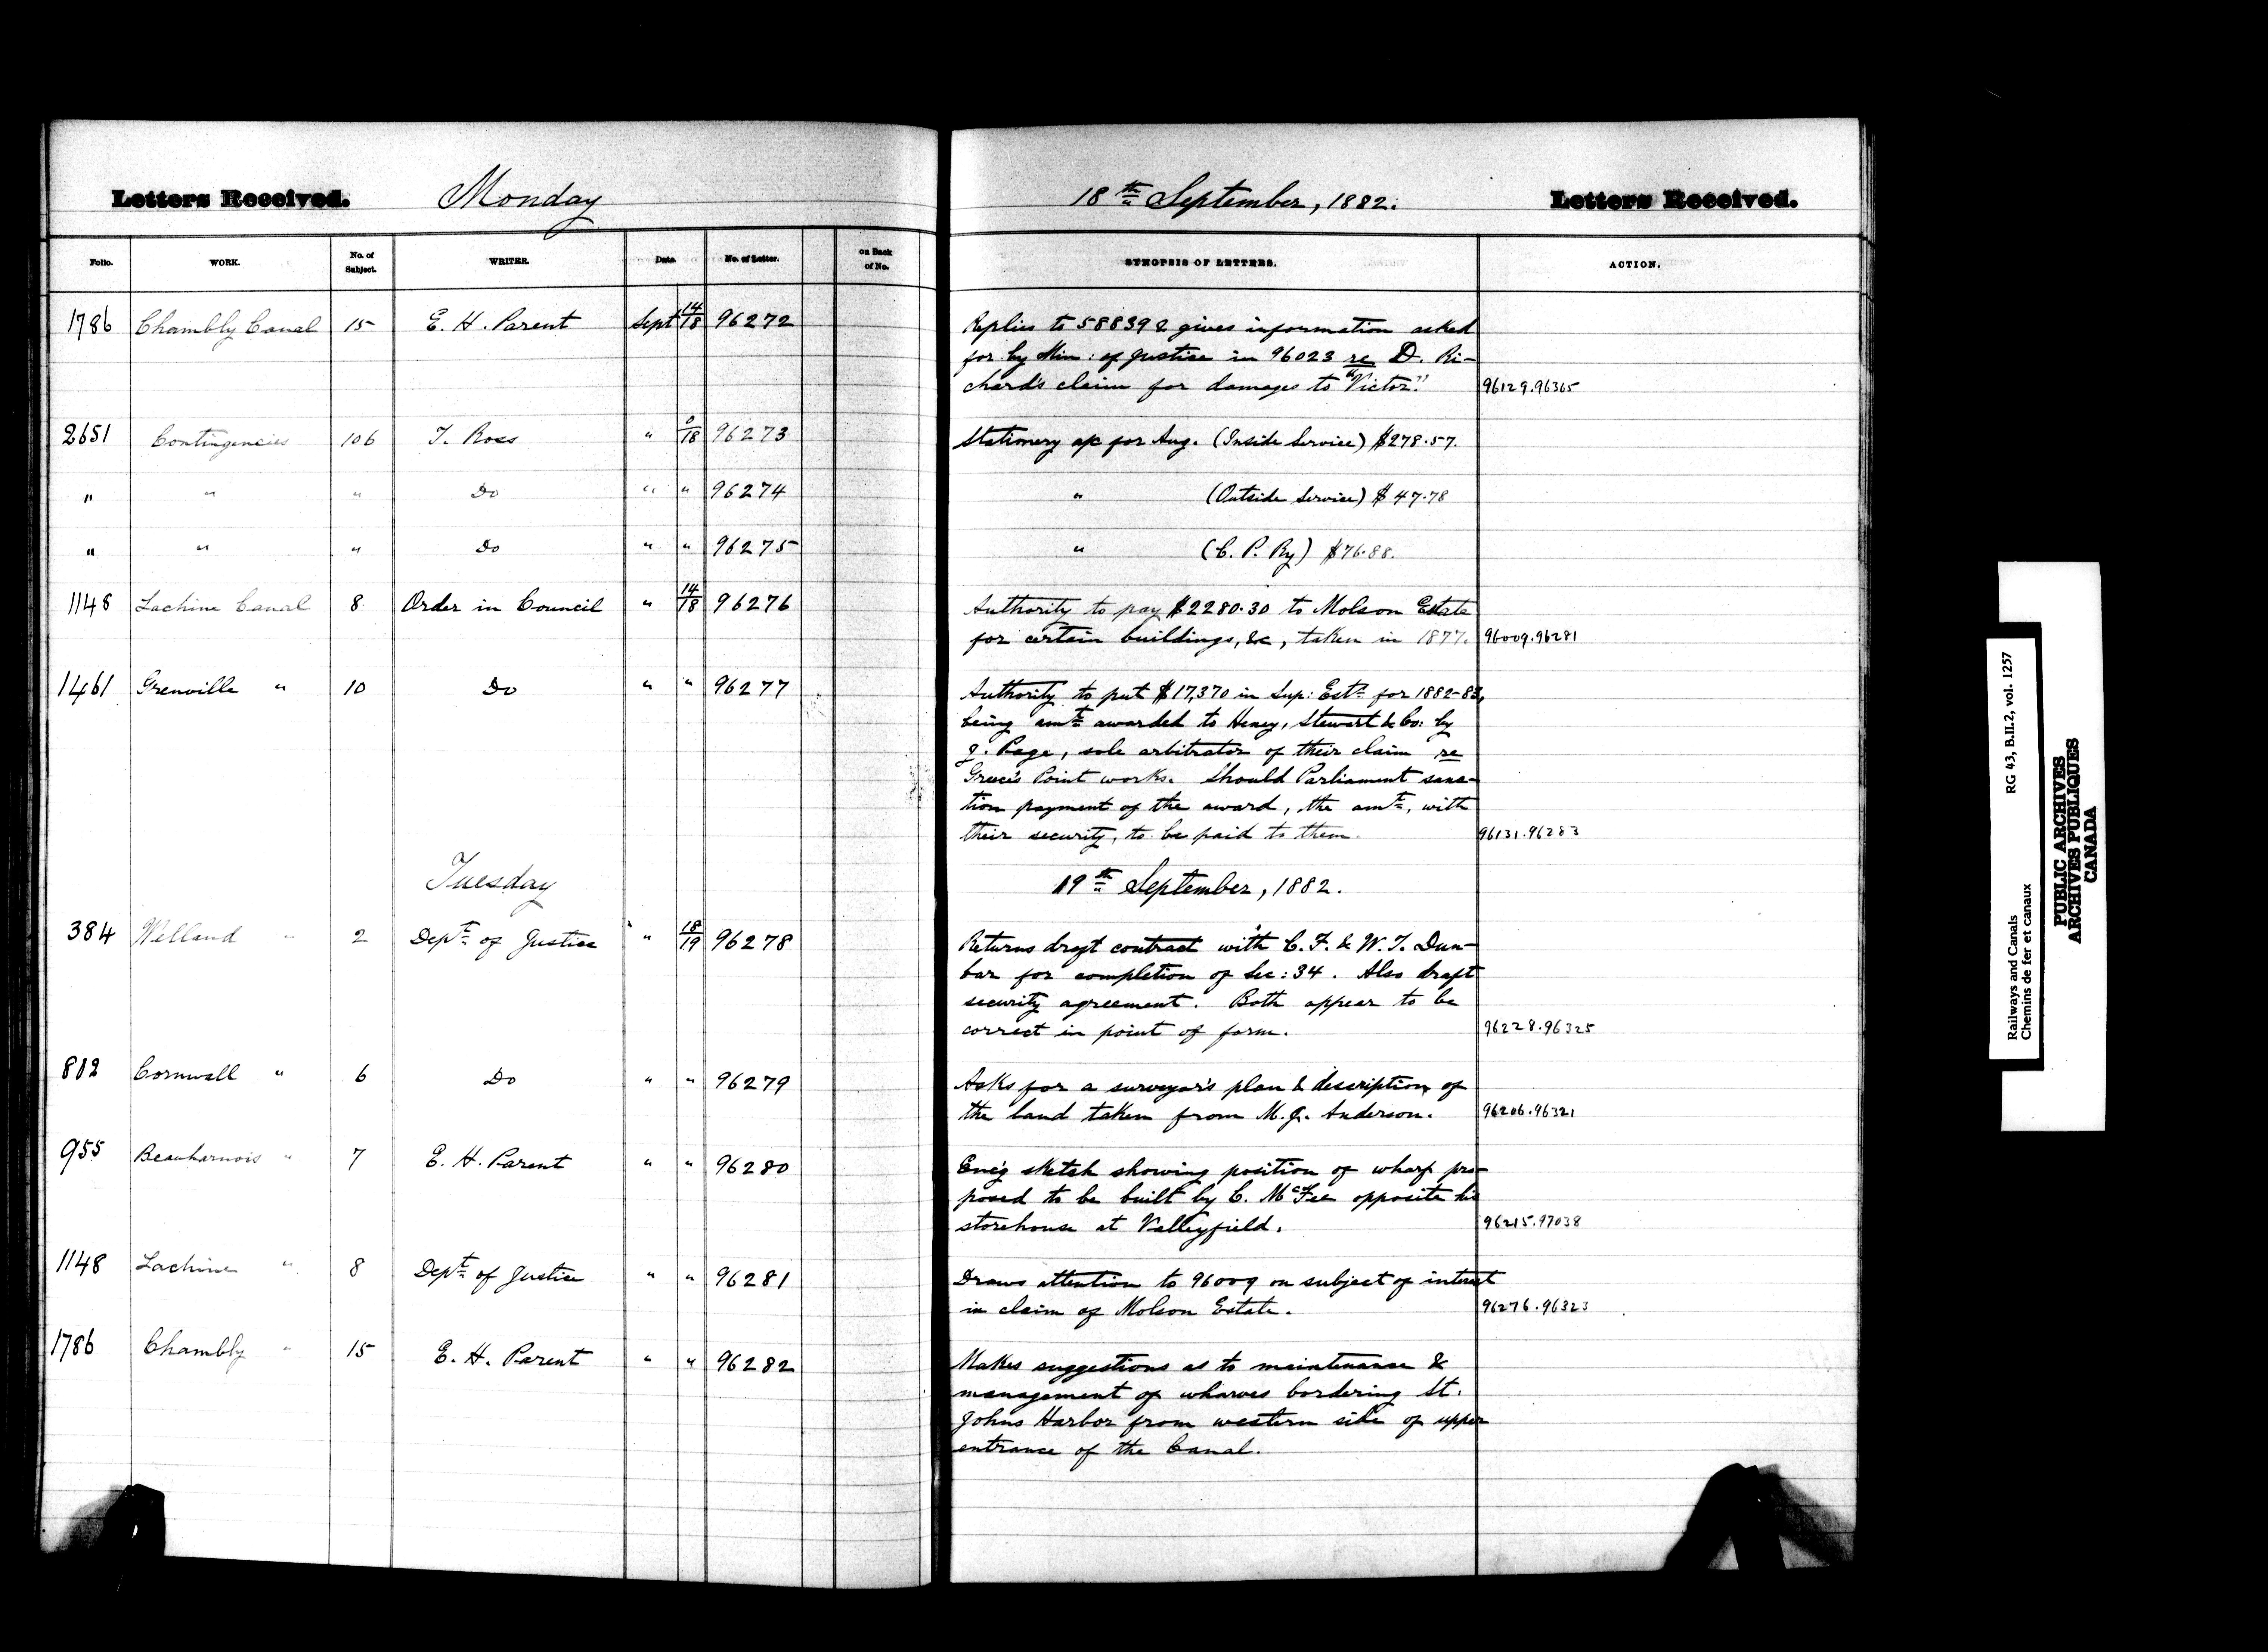 Letters Received. Monday 18th September, 1882. Letters Received.
Folio. WORK. No. of Subject. WRITER. Date. No. of Letter. on Back of No. SYNOPSIS OF LETTERS. ACTION.
1786 Chambly Canal 15 E. H. Parent Sept 14/18 96272 Replies to 58839 & gives information asked
for by Min: of Justice in 96023 re D. Ri-
chard's claim for damages to "Victor." 96129.96365
2651 Contingencies 106 T. Ross " 0/18 96273 Stationery a/c for Aug. (Inside Service) $278.57.
" " " Do " " 96274 " (Outside Service) $47.78
" " " Do " " 96275 " (C. P. Ry) $76.88.
1148 Lachine Canal 8 Order in Council " 14/18 96276 Authority to pay $2280.30 to Molson Estate
for certain buildings, &c, taken in 1877. 96009.96281
1461 Grenville " 10 Do " " 96277 Authority to put $17,370 in Sup: Ests for 1882-83,
being amt awarded to Heney, Stewart & Co: by
J. Page, sole arbitrator of their claim re
Greece's Point works. Should Parliament sanc-
tion payment of the award, the amt, with
their security, to be paid to them. 96131.96283
Tuesday 19th September, 1882.
384 Welland " 2 Dept of Justice " 18/19 96278 Returns draft contract with C. F. & W. T. Dun-
bar for completion of Sec: 34. Also draft
security agreement. Both appear to be
correct in point of form. 96228.96325
802 Cornwall " 6 Do " " 96279 Asks for a surveyor's plan & description of
the land taken from M. J. Anderson. 96206.96321
955 Beauharnois " 7 E. H. Parent " " 96280 Enc'g sketch showing position of wharf pro-
posed to be built by C. McFee opposite his
storehouse at Valleyfield. 96215.97038
1148 Lachine " 8 Dept of Justice " " 96281 Draws attention to 96009 on subject of interest
in claim of Molson Estate. 96276.96323
1786 Chambly " 15 E. H. Parent " " 96282 Makes suggestions as to maintenance &
management of wharves bordering St.
Johns Harbor from western side of upper
entrance of the Canal.
Railways and Canals RG 43, B.II.2, vol. 1257
Chemins de fer et canaux
PUBLIC ARCHIVES
ARCHIVES PUBLIQUES
CANADA